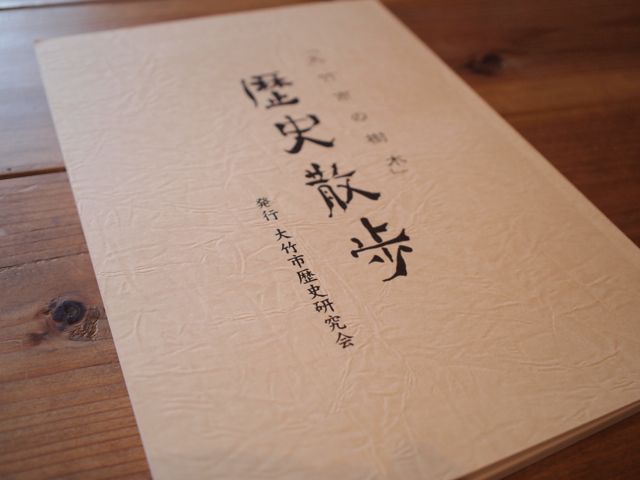 「大竹市の樹木」
歴史散歩
発行 大竹市歴史研究会